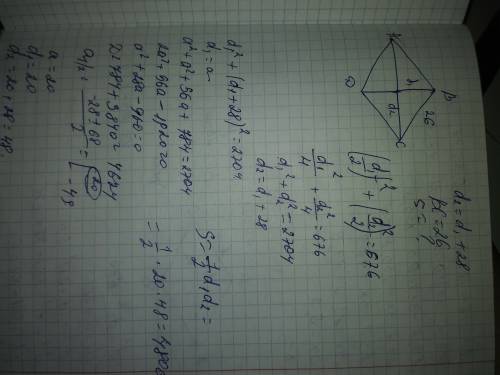 d₂ = d₁ + 28
BC = 26
S = ?
A
B
C
D
26
d₁
d₂
(d₁/2)² + (d₂/2)² = 676
d₁²/4 + d₂²/4 = 676
d₁² + d₂² = 2704
d₂ = d₁ + 28
d₁² + (d₁ + 28)² = 2704
d₁ = a
a² + a² + 56a + 784 = 2704
2a² + 56a - 1920 = 0
a² + 28a - 960 = 0
D = 784 + 3840 = 4624
a₁,₂ = (-28 ± 68)/2 = [20 -48
a = 20
d₁ = 20
d₂ = 20 + 28 = 48
S = 1/2 d₁d₂ =
= 1/2 · 20 · 48 = 480